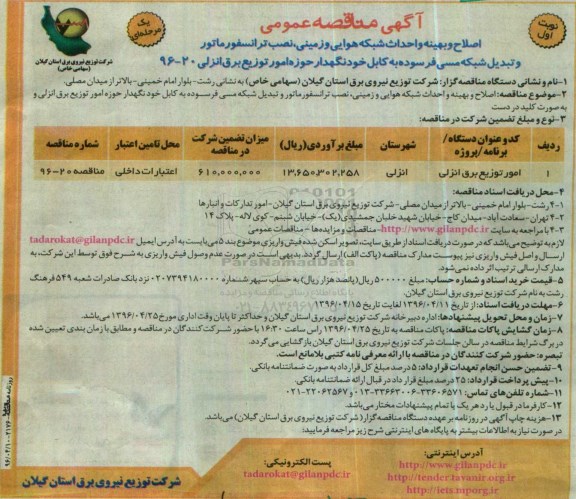 آگهی مناقصه عمومی
نوبت اول
یک مرحله‌ای
شرکت توزیع نیروی برق استان گیلان
(سهامی خاص)
اصلاح و بهینه و احداث شبکه هوایی و زمینی، نصب ترانسفورماتور
و تبدیل شبکه مسی فرسوده به کابل خود نگهدار حوزه امور توزیع برق انزلی ۲۰-۹۶
۱-نام و نشانی دستگاه مناقصه گزار: شرکت توزیع نیروی برق استان گیلان (سهامی خاص) به نشانی رشت- بلوار امام خمینی-بالاتر از میدان مصلی.
۲-موضوع مناقصه: اصلاح و بهینه و احداث شبکه هوایی و زمینی، نصب ترانسفورماتور و تبدیل شبکه مسی فرسوده به کابل خود نگهدار حوزه امور توزیع برق انزلی
و به صورت کلید در دست
۳-نوع و مبلغ تضمین شرکت در مناقصه:
ردیف کد و عنوان دستگاه/برنامه/پروژه شهرستان مبلغ برآوردی(ریال) میزان تضمین شرکت در مناقصه محل تامین اعتبار شماره مناقصه
۱ امور توزیع برق انزلی انزلی ۱۳,۶۵۰,۳۰۲,۲۵۸ ۶۱۰,۰۰۰,۰۰۰ اعتبارات داخلی مناقصه ۲۰-۹۶
۴-محل دریافت اسناد مناقصه:
۴-۱ رشت- بلوار امام خمینی-بالاتر از میدان مصلی- شرکت توزیع نیروی برق استان گیلان-امور تدارکات و انبارها
۴-۲ تهران-سعادت آباد- میدان کاج- خیابان شهید خلبان جمشیدی(یک)- خیابان شبنم- کوی لاله- پلاک ۱۴
۴-۳ با مراجعه به سایت http://www.gilanpdc.ir- مناقصات و مزایده‌ها – مناقصات عمومی
لازم به توضیح می‌باشد که در صورت دریافت اسناد از طریق سایت، تصویر اسکن شده فیش واریزی موضوع بند ۵ می‌بایست به آدرس ایمیل tadarokat@gilanpdc.ir
ارسال و اصل فیش واریزی نیز پیوست مدارک مناقصه (پاکت الف) ارسال گردد. بدیهی است در صورت عدم وصول فیش واریزی به شرح فوق توسط این شرکت، به
مدارک ارسالی ترتیب اثر داده نمی‌شود.
۵-قیمت خرید اسناد و شماره حساب: مبلغ ۵۰۰۰۰۰ ریال(پانصد هزار ریال) به حساب سپهر شماره ۰۲۰۷۳۹۴۱۸۰۰۰۰ نزد بانک صادرات شعبه ۵۴۹ فرهنگ
رشت به نام شرکت توزیع نیروی برق استان گیلان.
۶-مهلت دریافت اسناد: از تاریخ ۱۳۹۶/۰۴/۱۱ لغایت تاریخ ۱۳۹۶/۰۴/۱۵
۷-زمان و محل تحویل پیشنهادها: اداره دبیرخانه شرکت توزیع نیروی برق استان گیلان و حداکثر تا پایان وقت اداری مورخ ۱۳۹۶/۰۴/۲۵ می‌باشد.
۸-زمان گشایش پاکات مناقصه: پاکات مناقصه به تاریخ ۱۳۹۶/۰۴/۲۵ راس ساعت ۱۶:۳۰ با حضور شرکت کنندگان در مناقصه و مطابق با زمان بندی تعیین شده
در برگ شرایط مناقصه در سالن جلسات شرکت توزیع نیروی برق استان گیلان بازگشایی می‌گردد.
تبصره: حضور شرکت کنندگان در مناقصه با ارائه معرفی نامه کتبی بلامانع است.
۹-تضمین حسن انجام تعهدات قرارداد: ۵ درصد مبلغ کل قرارداد به صورت ضمانتنامه بانکی.
۱۰-پیش پرداخت قرارداد: ۲۵ درصد مبلغ قرارداد در قبال ارائه ضمانتنامه بانکی.
۱۱-شماره تلفن‌های تماس: ۳۳۶۰۶۵۷۱-۳۳۶۶۳۰۰۶-۰۱۳ و ۲۲۰۶۲۵۶۷-۰۲۱
۱۲-کارفرما در قبول یا رد هر یک یا تمام پیشنهادات مختار می‌باشد.
۱۳-هزینه چاپ آگهی در روزنامه بر عهده دستگاه مناقصه گزار (شرکت توزیع نیروی برق استان گیلان) می‌باشد.
در صورت نیاز به اطلاعات بیشتر به پایگاه‌های اینترنتی شرح زیر مراجعه فرمایید:
آدرس اینترنتی:
http://www.gilanpdc.ir
http://tender.tavanir.org.ir
http://iets.mporg.ir
پست الکترونیکی:
tadarokat@gilanpdc.ir
شرکت توزیع نیروی برق استان گیلان
ParsNamadData